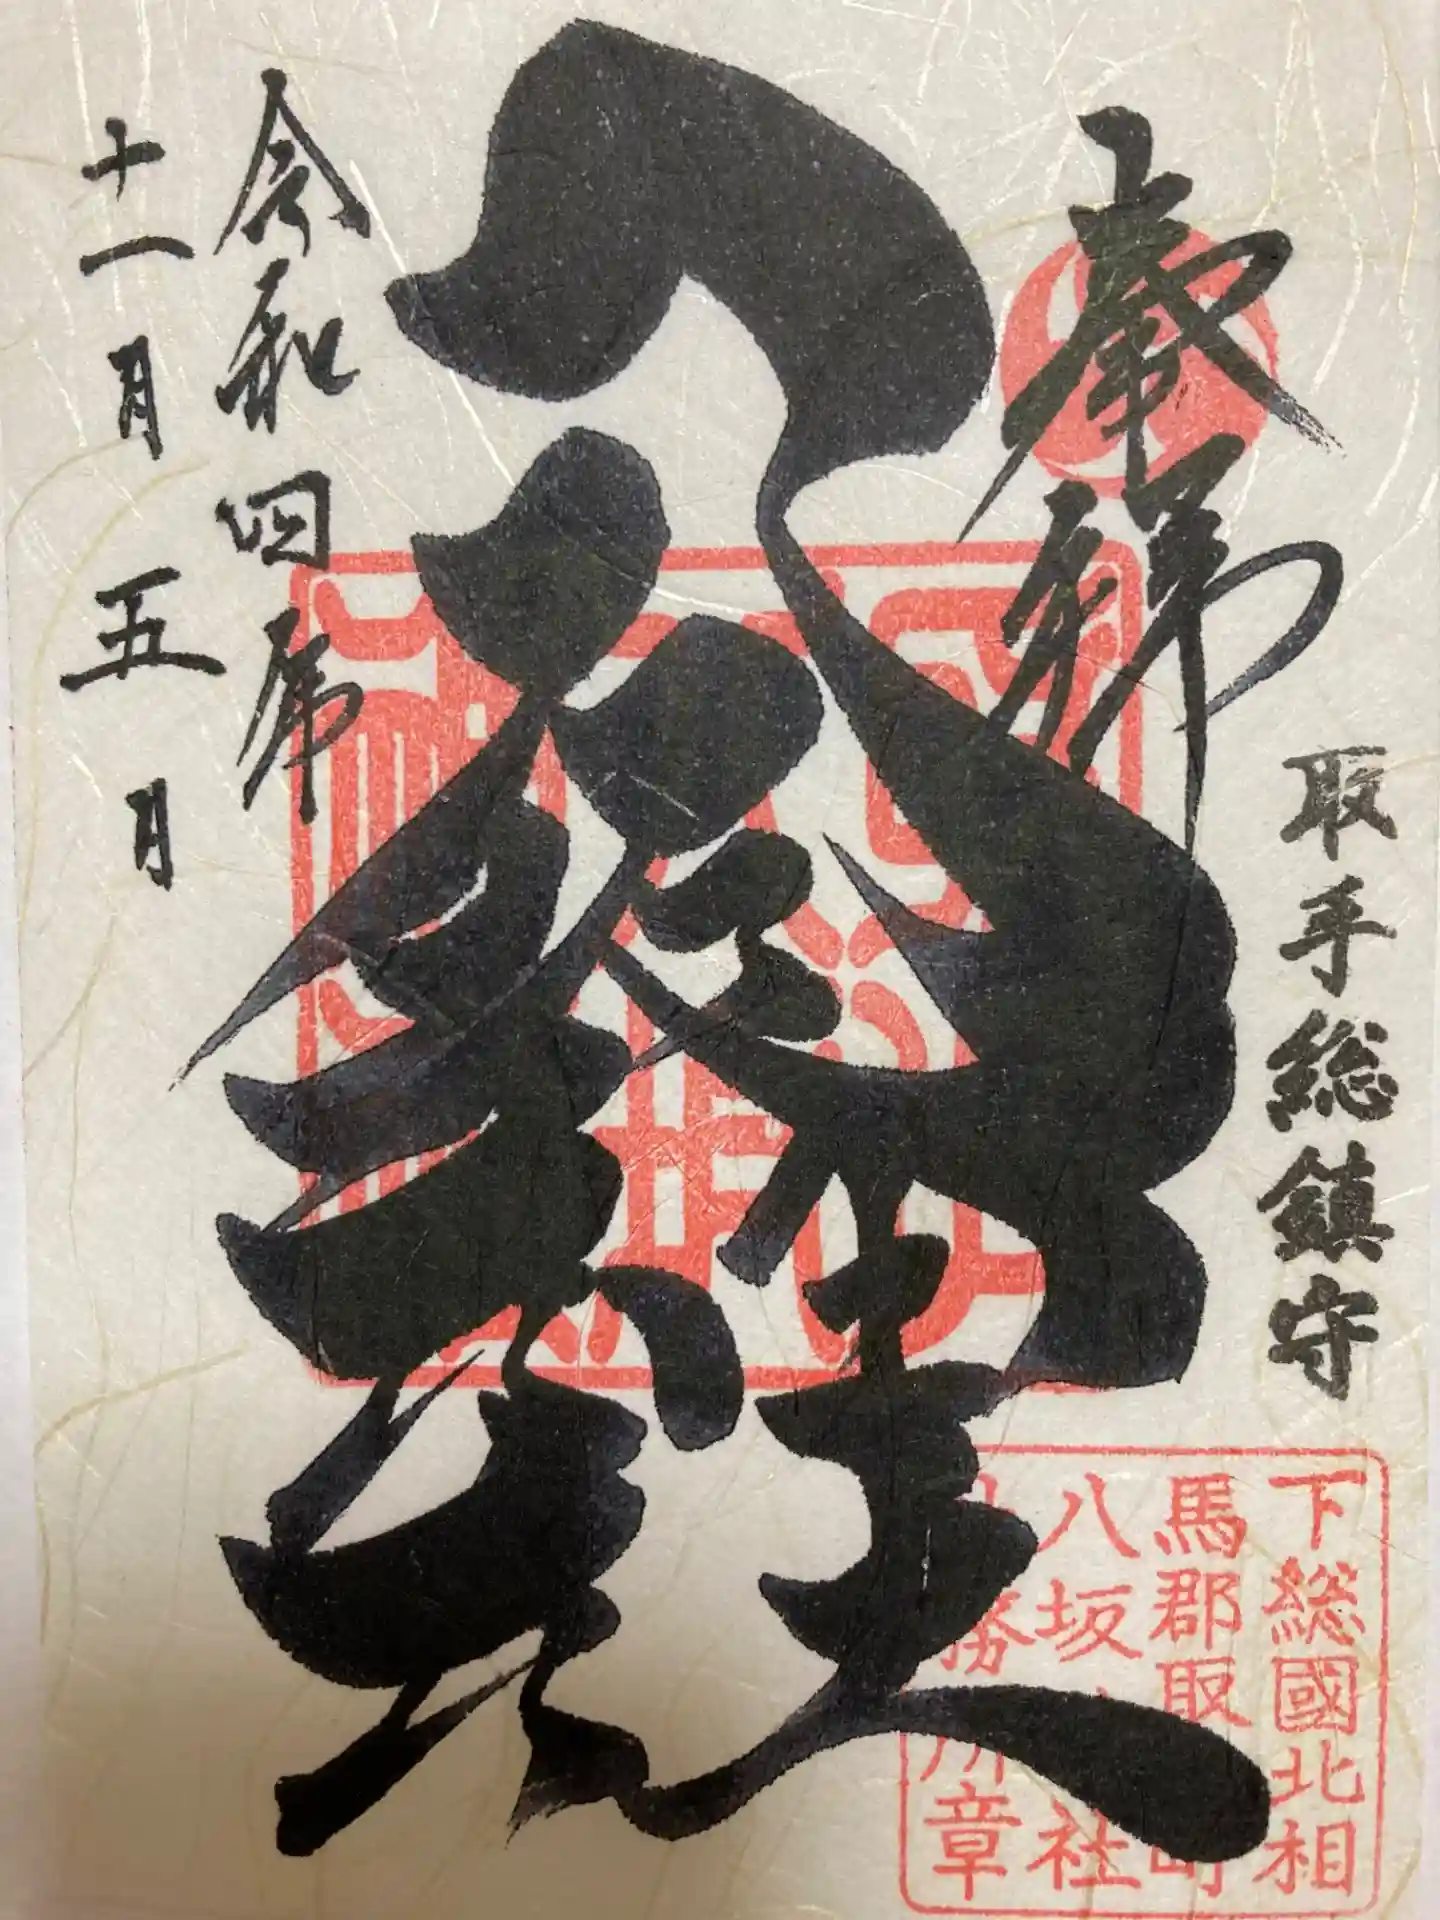 奉拝
取手総鎮守
八坂神社
令和四年
十一月五月
下総國北相
馬郡取町
八坂社
務所章